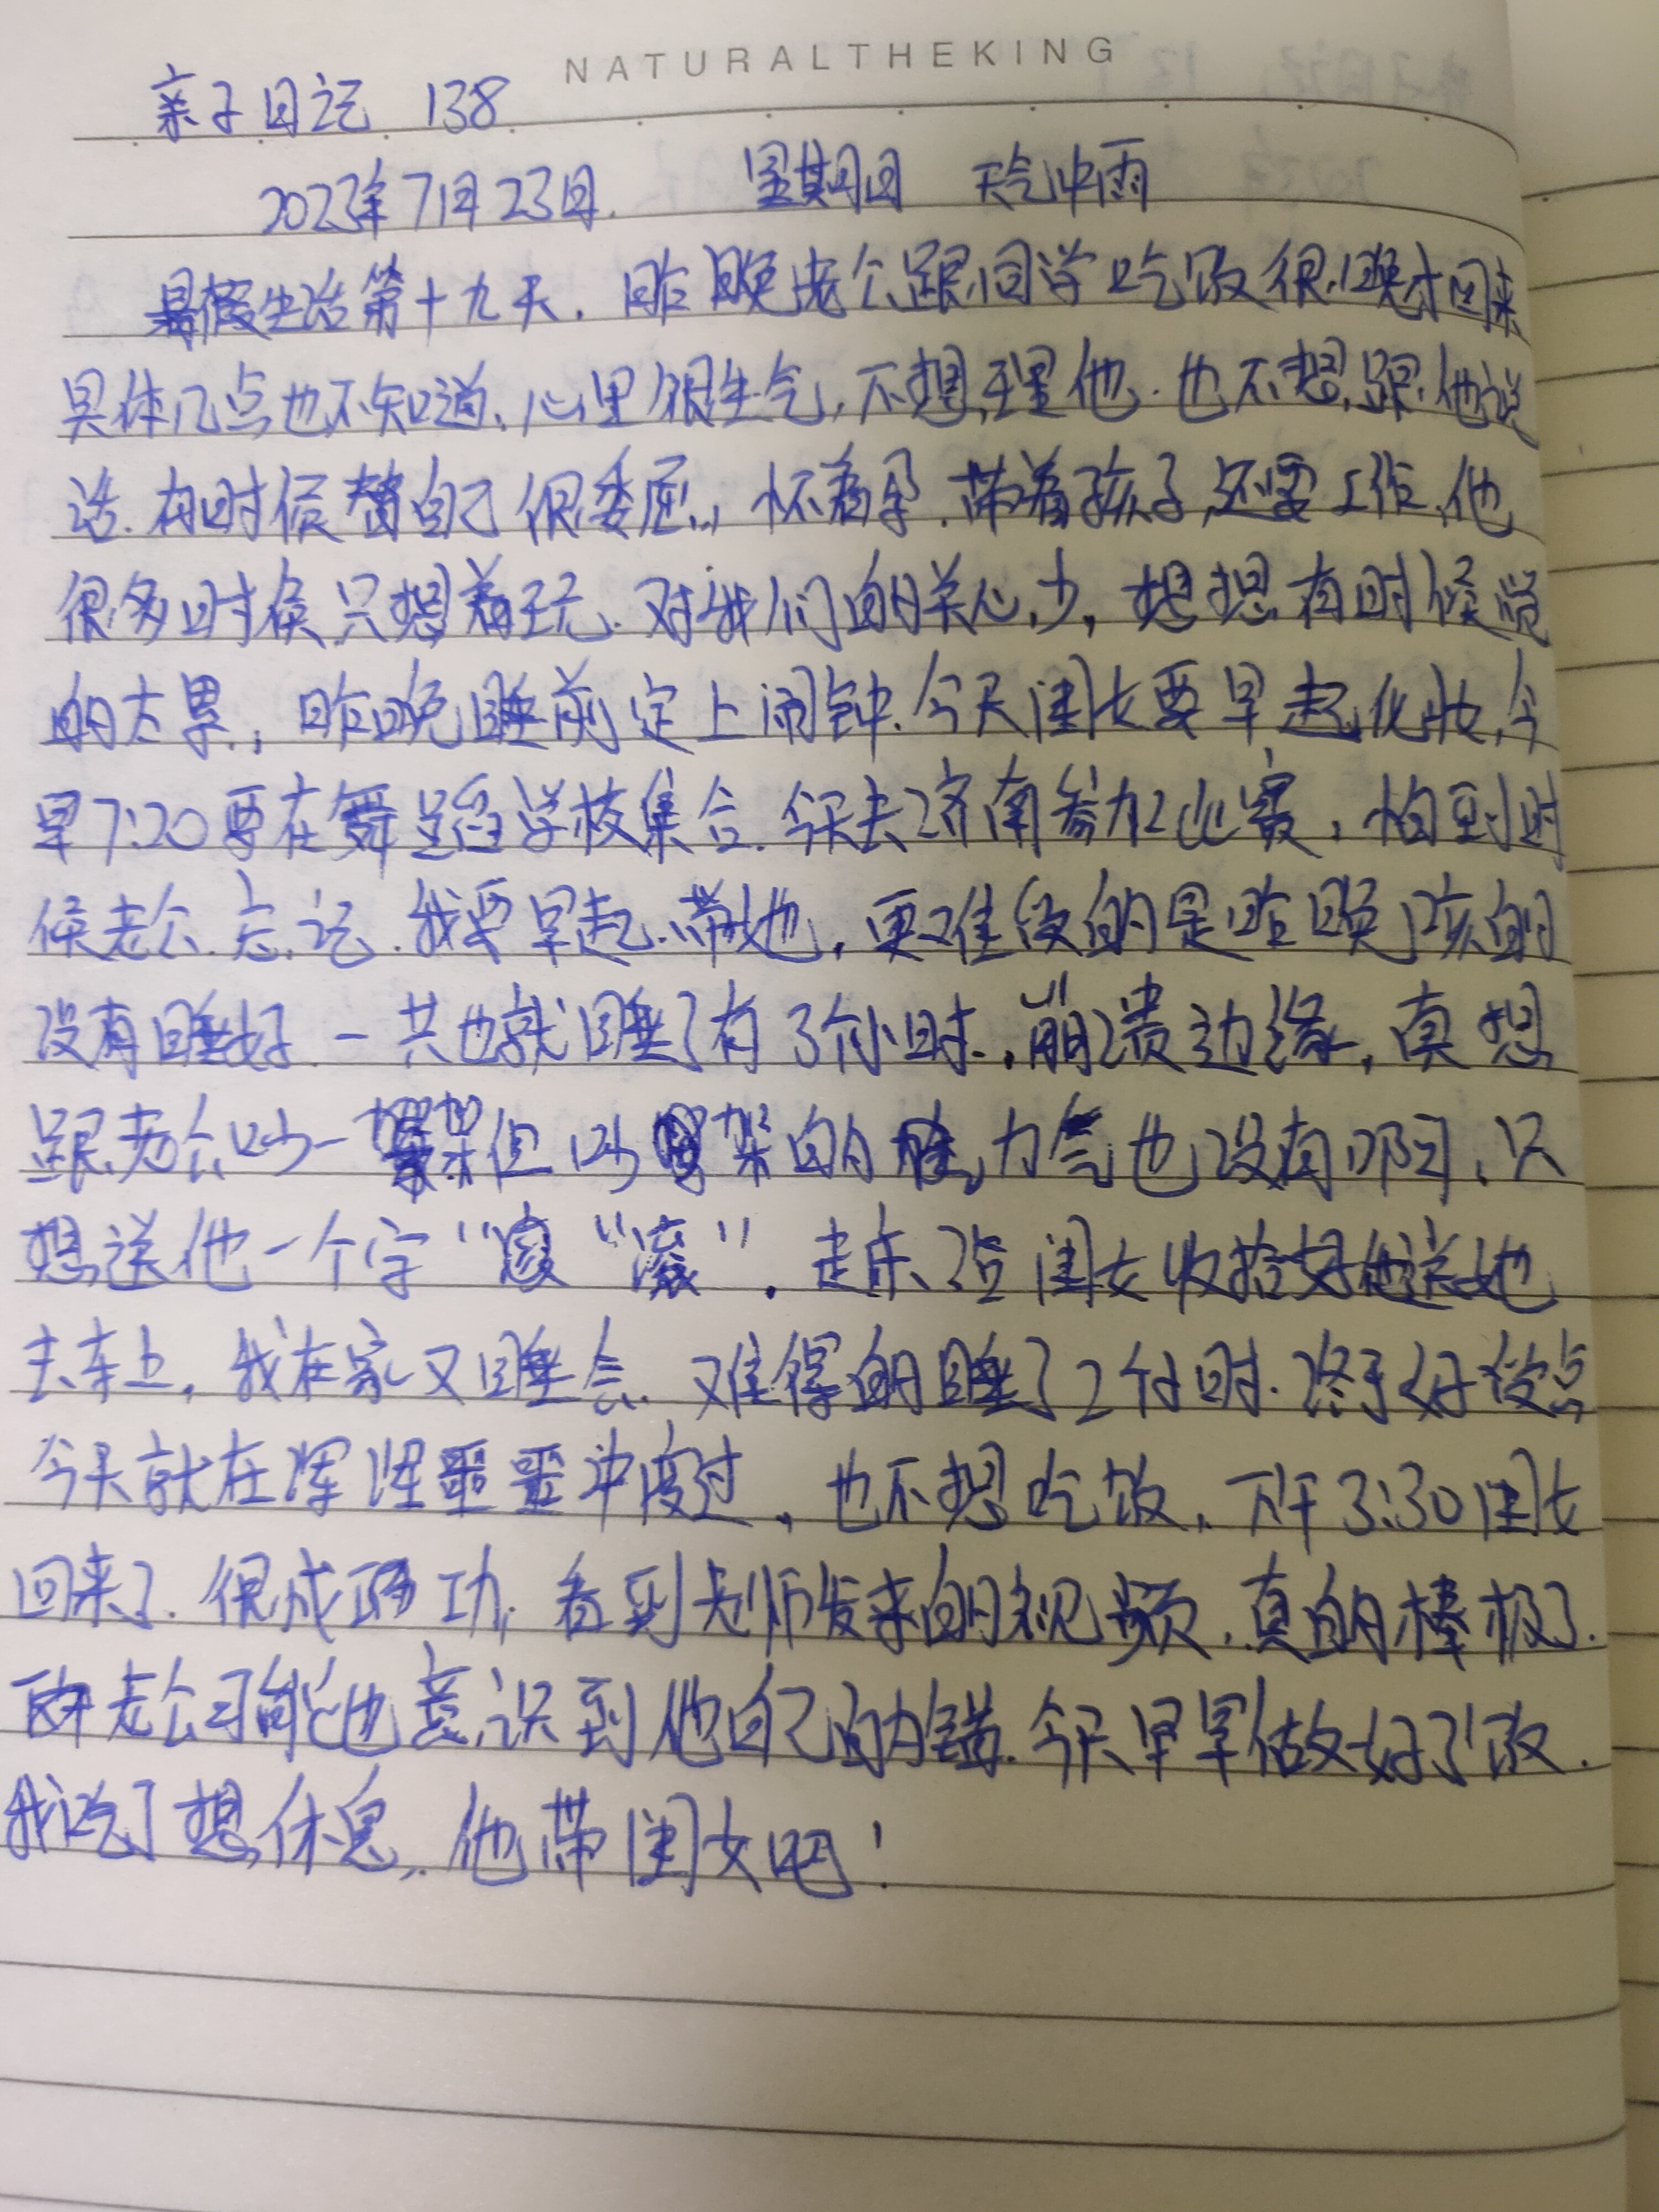 NATURALTHEKING
亲子日记 138
2023年7月23日. 星期日 天气中雨
暑假生活第十九天. 昨晚老公跟同学吃饭很晚才回来
具体几点也不知道. 心里很生气, 不想理他. 也不想跟他说
话. 有时候替自己很委屈, 怀着孕. 带着孩子, 还要工作, 他
很多时候只想着玩. 对我们的关心少, 想想有时候觉
的太累, 昨晚睡前定上闹钟. 今天闺女要早起化妆, 今
早7:20要在舞蹈学校集合. 今天去济南参加比赛, 怕到时
候老公忘记. 我要早起带她, 更难受的是昨晚咳的
没有睡好. 一共也就睡了有3个小时, 崩溃边缘, 真想
跟老公吵一架但吵架的力气也没有啊, 只
想送他一个字"滚". 起床给闺女收拾好他送她
去车上, 我在家又睡会. 难得的睡了2个小时. 终于好受点
今天就在浑浑噩噩中度过, 也不想吃饭, 下午3:30闺女
回来了. 很成功, 看到老师发来的视频, 真的棒极了.
老公可能也意识到他自己的错. 今天早早做好了饭.
我吃了想休息, 他带闺女吧!